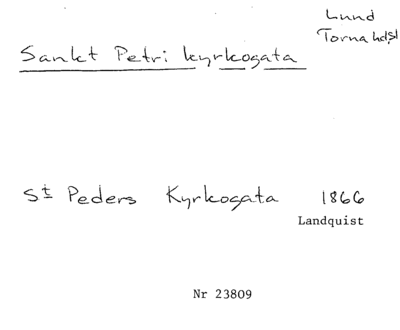 Lund
Torna hdsl
Sankt Petri kyrkogata
St Peders Kyrkogata 1866
Landquist
Nr 23809